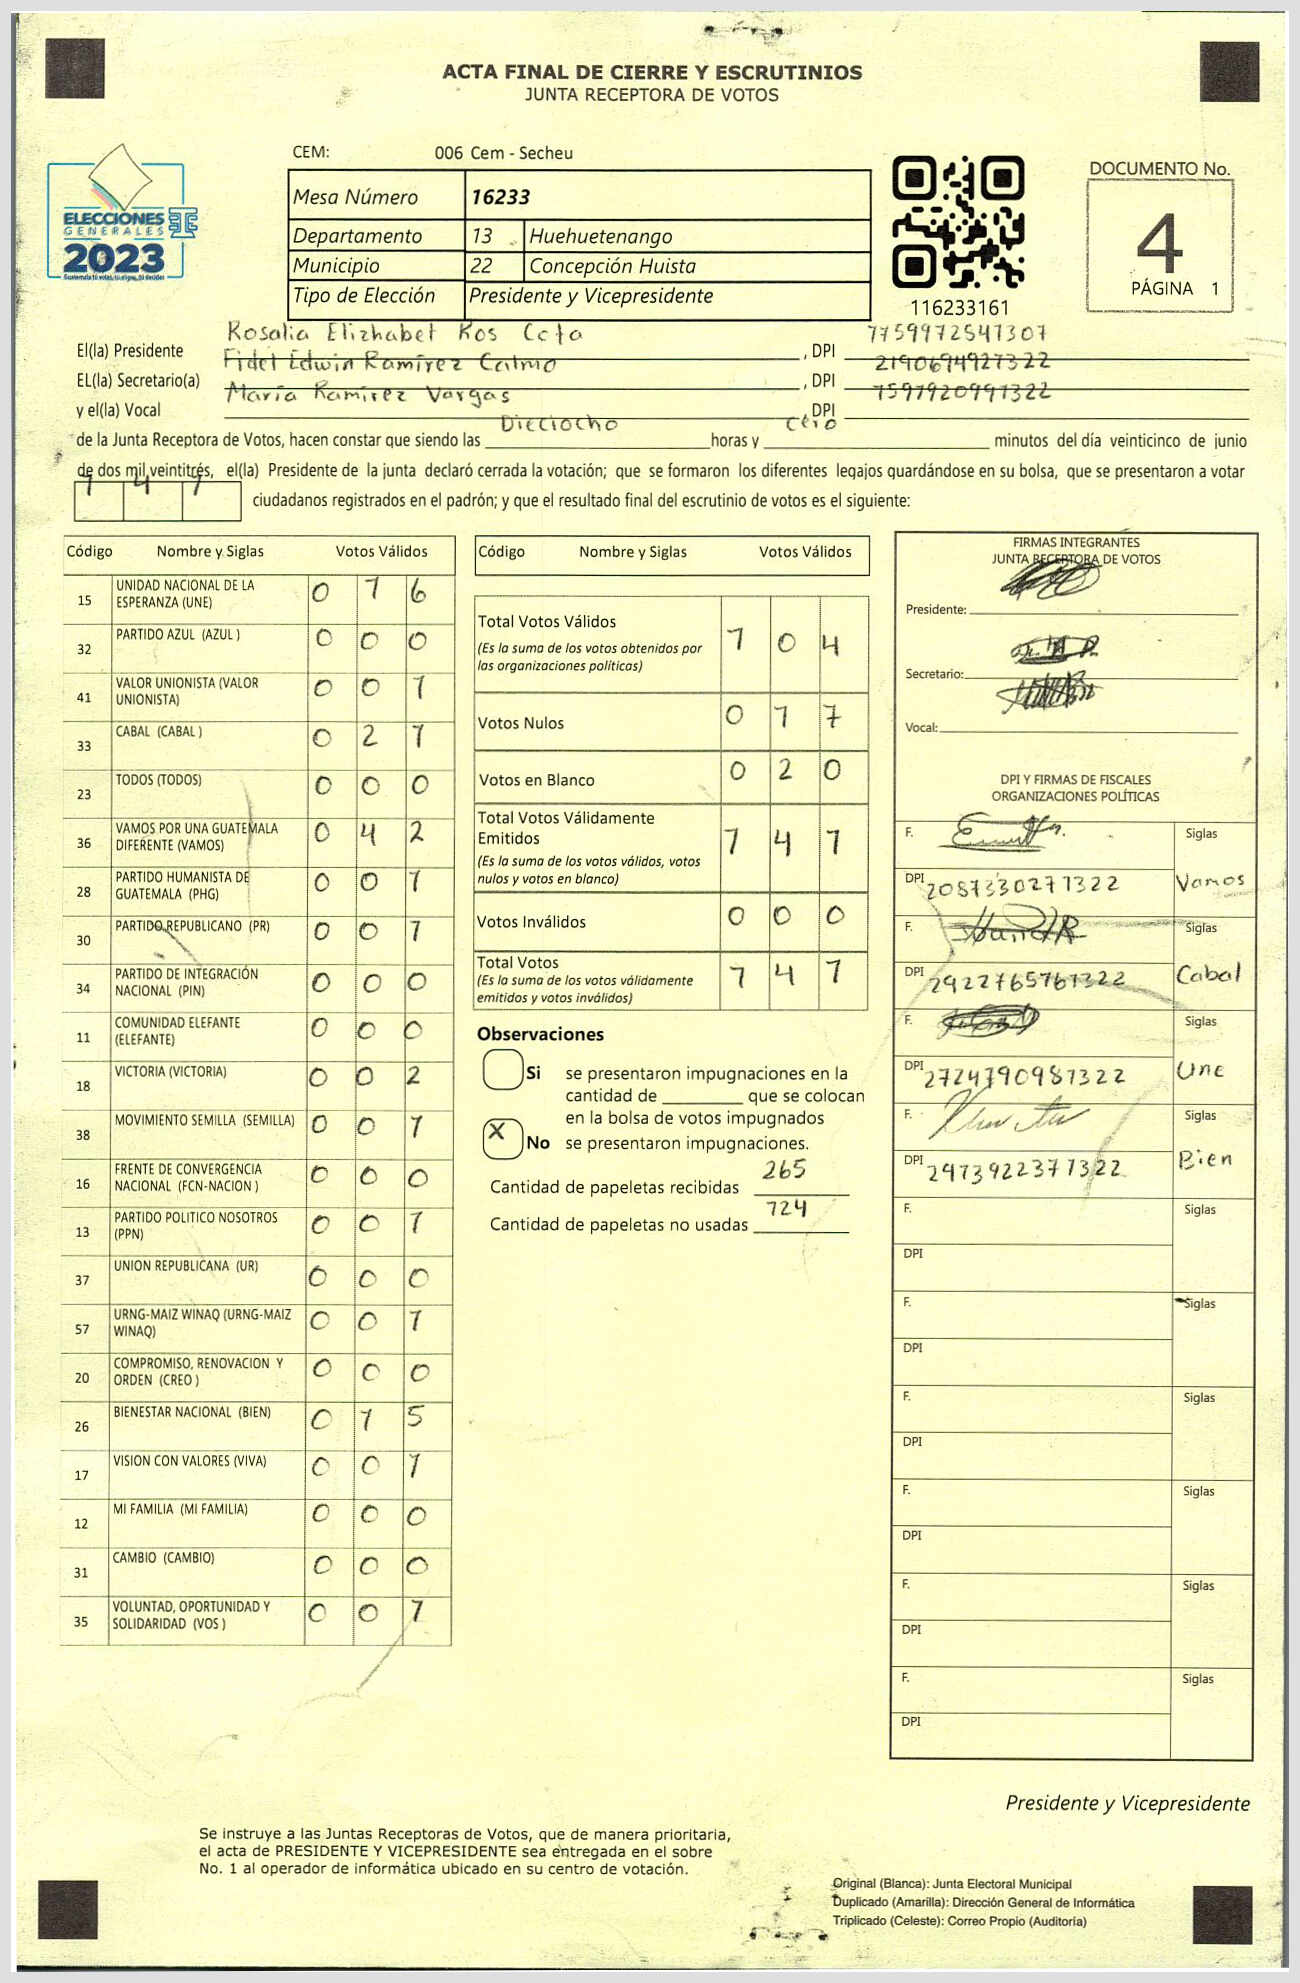 ACTA FINAL DE CIERRE Y ESCRUTINIOS
JUNTA RECEPTORA DE VOTOS
ELECCIONES
GENERALES
2023
CEM: 006 Cem - Secheu
Mesa Número 16233
Departamento 13 Huehuetenango
Municipio 22 Concepción Huista
Tipo de Elección Presidente y Vicepresidente
116233161
DOCUMENTO No.
4
PÁGINA 1
El(la) Presidente Rosalia Elizhabet Ros Cota , DPI 1759972541307
EL(la) Secretario(a) Fidel Edwin Ramírez Calmo , DPI 2190694921322
y el(la) Vocal María Ramírez Vargas DPI 1597920991322
de la Junta Receptora de Votos, hacen constar que siendo las Dieciocho horas y cero minutos del día veinticinco de junio
de dos mil veintitrés, el(la) Presidente de la junta declaró cerrada la votación; que se formaron los diferentes legajos quardándose en su bolsa, que se presentaron a votar
1 4 1 ciudadanos registrados en el padrón; y que el resultado final del escrutinio de votos es el siguiente:
Código Nombre y Siglas Votos Válidos
15 UNIDAD NACIONAL DE LA ESPERANZA (UNE) 0 1 6
32 PARTIDO AZUL (AZUL ) 0 0 0
41 VALOR UNIONISTA (VALOR UNIONISTA) 0 0 1
33 CABAL (CABAL ) 0 2 1
23 TODOS (TODOS) 0 0 0
36 VAMOS POR UNA GUATEMALA DIFERENTE (VAMOS) 0 4 2
28 PARTIDO HUMANISTA DE GUATEMALA (PHG) 0 0 1
30 PARTIDO REPUBLICANO (PR) 0 0 1
34 PARTIDO DE INTEGRACIÓN NACIONAL (PIN) 0 0 0
11 COMUNIDAD ELEFANTE (ELEFANTE) 0 0 0
18 VICTORIA (VICTORIA) 0 0 2
38 MOVIMIENTO SEMILLA (SEMILLA) 0 0 1
16 FRENTE DE CONVERGENCIA NACIONAL (FCN-NACION ) 0 0 0
13 PARTIDO POLITICO NOSOTROS (PPN) 0 0 1
37 UNION REPUBLICANA (UR) 0 0 0
57 URNG-MAIZ WINAQ (URNG-MAIZ WINAQ) 0 0 1
20 COMPROMISO, RENOVACION Y ORDEN (CREO ) 0 0 0
26 BIENESTAR NACIONAL (BIEN) 0 1 5
17 VISION CON VALORES (VIVA) 0 0 1
12 MI FAMILIA (MI FAMILIA) 0 0 0
31 CAMBIO (CAMBIO) 0 0 0
35 VOLUNTAD, OPORTUNIDAD Y SOLIDARIDAD (VOS ) 0 0 1
Código Nombre y Siglas Votos Válidos
Total Votos Válidos 1 0 4
(Es la suma de los votos obtenidos por
las organizaciones políticas)
Votos Nulos 0 1 7
Votos en Blanco 0 2 0
Total Votos Válidamente
Emitidos 1 4 1
(Es la suma de los votos válidos, votos
nulos y votos en blanco)
Votos Inválidos 0 0 0
Total Votos 1 4 1
(Es la suma de los votos válidamente
emitidos y votos inválidos)
Observaciones
Si se presentaron impugnaciones en la
cantidad de ________ que se colocan
en la bolsa de votos impugnados
X No se presentaron impugnaciones.
Cantidad de papeletas recibidas 265
Cantidad de papeletas no usadas 124
FIRMAS INTEGRANTES
JUNTA RECEPTORA DE VOTOS
Presidente:
Secretario:
Vocal:
DPI Y FIRMAS DE FISCALES
ORGANIZACIONES POLÍTICAS
F. Siglas
DPI 2087330271322 Vamos
F. Siglas
DPI 2922765761322 Cabal
F. Siglas
DPI 2724790981322 Une
F. Siglas
DPI 2973922371322 Bien
F. Siglas
DPI
F. Siglas
DPI
F. Siglas
DPI
F. Siglas
DPI
F. Siglas
DPI
F. Siglas
DPI
Presidente y Vicepresidente
Se instruye a las Juntas Receptoras de Votos, que de manera prioritaria,
el acta de PRESIDENTE Y VICEPRESIDENTE sea entregada en el sobre
No. 1 al operador de informática ubicado en su centro de votación.
Original (Blanca): Junta Electoral Municipal
Duplicado (Amarilla): Dirección General de Informática
Triplicado (Celeste): Correo Propio (Auditoría)